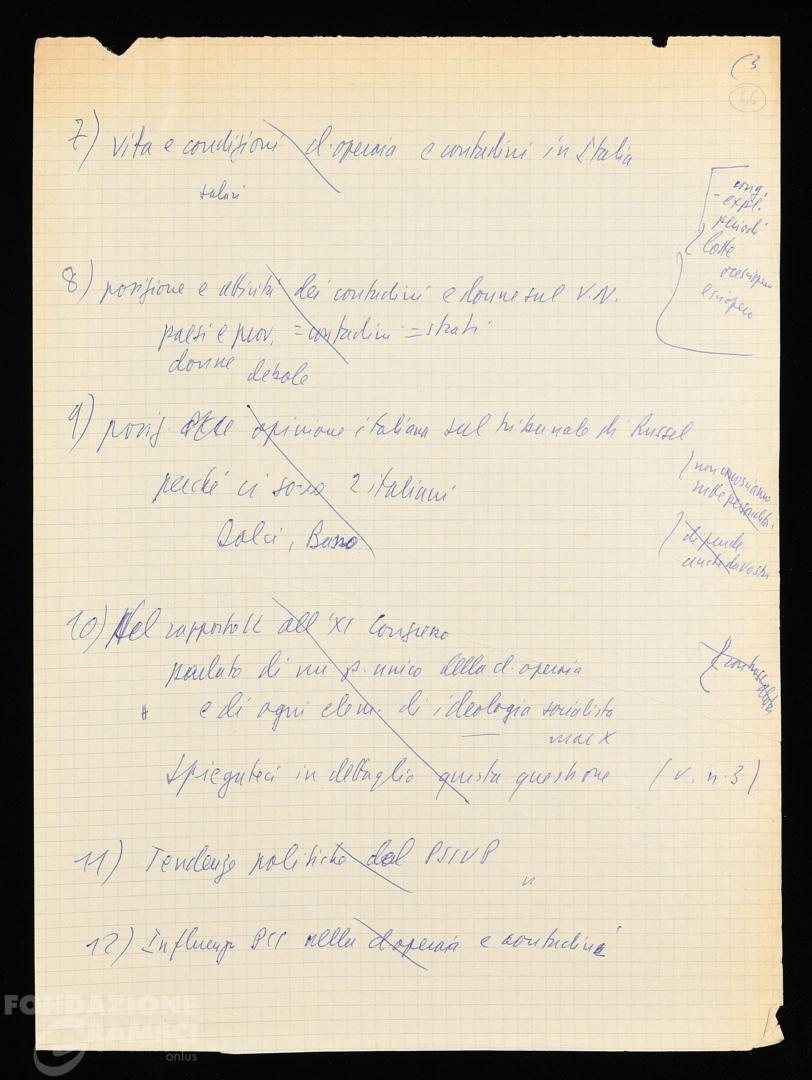 (3
66
7) vita e condizioni cl. operaia e contadini in Italia
salari
cong.
- expl.
periodi
lotte
europeo
8) posizione e attività dei contadini e donne sul V.N.
paesi e prov. = contadini = strati
donne debole
9) posiz. opinione italiana sul tribunale di Russel
perché ci sono 2 italiani
Dolci, Basso
non conosciamo
molte personalità
dipende
anche da vostri
10) Nel rapporto LL all'XI Congresso
parlato di un p. unico della cl. operaia
e di ogni elem. di ideologia socialista
marx
Spiegateci in dettaglio questa questione (v. n. 3)
11) Tendenze politiche del PSIUP
"
12) Influenza PCI nella cl operaia e contadini
FONDAZIONE
GRAMSCI
onlus